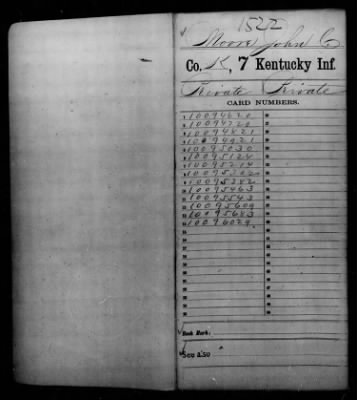 1522
Moore John C
Co. K, 7 Kentucky Inf.
Private Private
CARD NUMBERS.
1 10094620
2 10094720
3 10094821
4 10094921
5 10095030
6 10095124
7 10095214
8 10095302
9 10095382
10 10095463
11 10095543
12 10095609
13 10095683
14 10096029
Book Mark:
See also